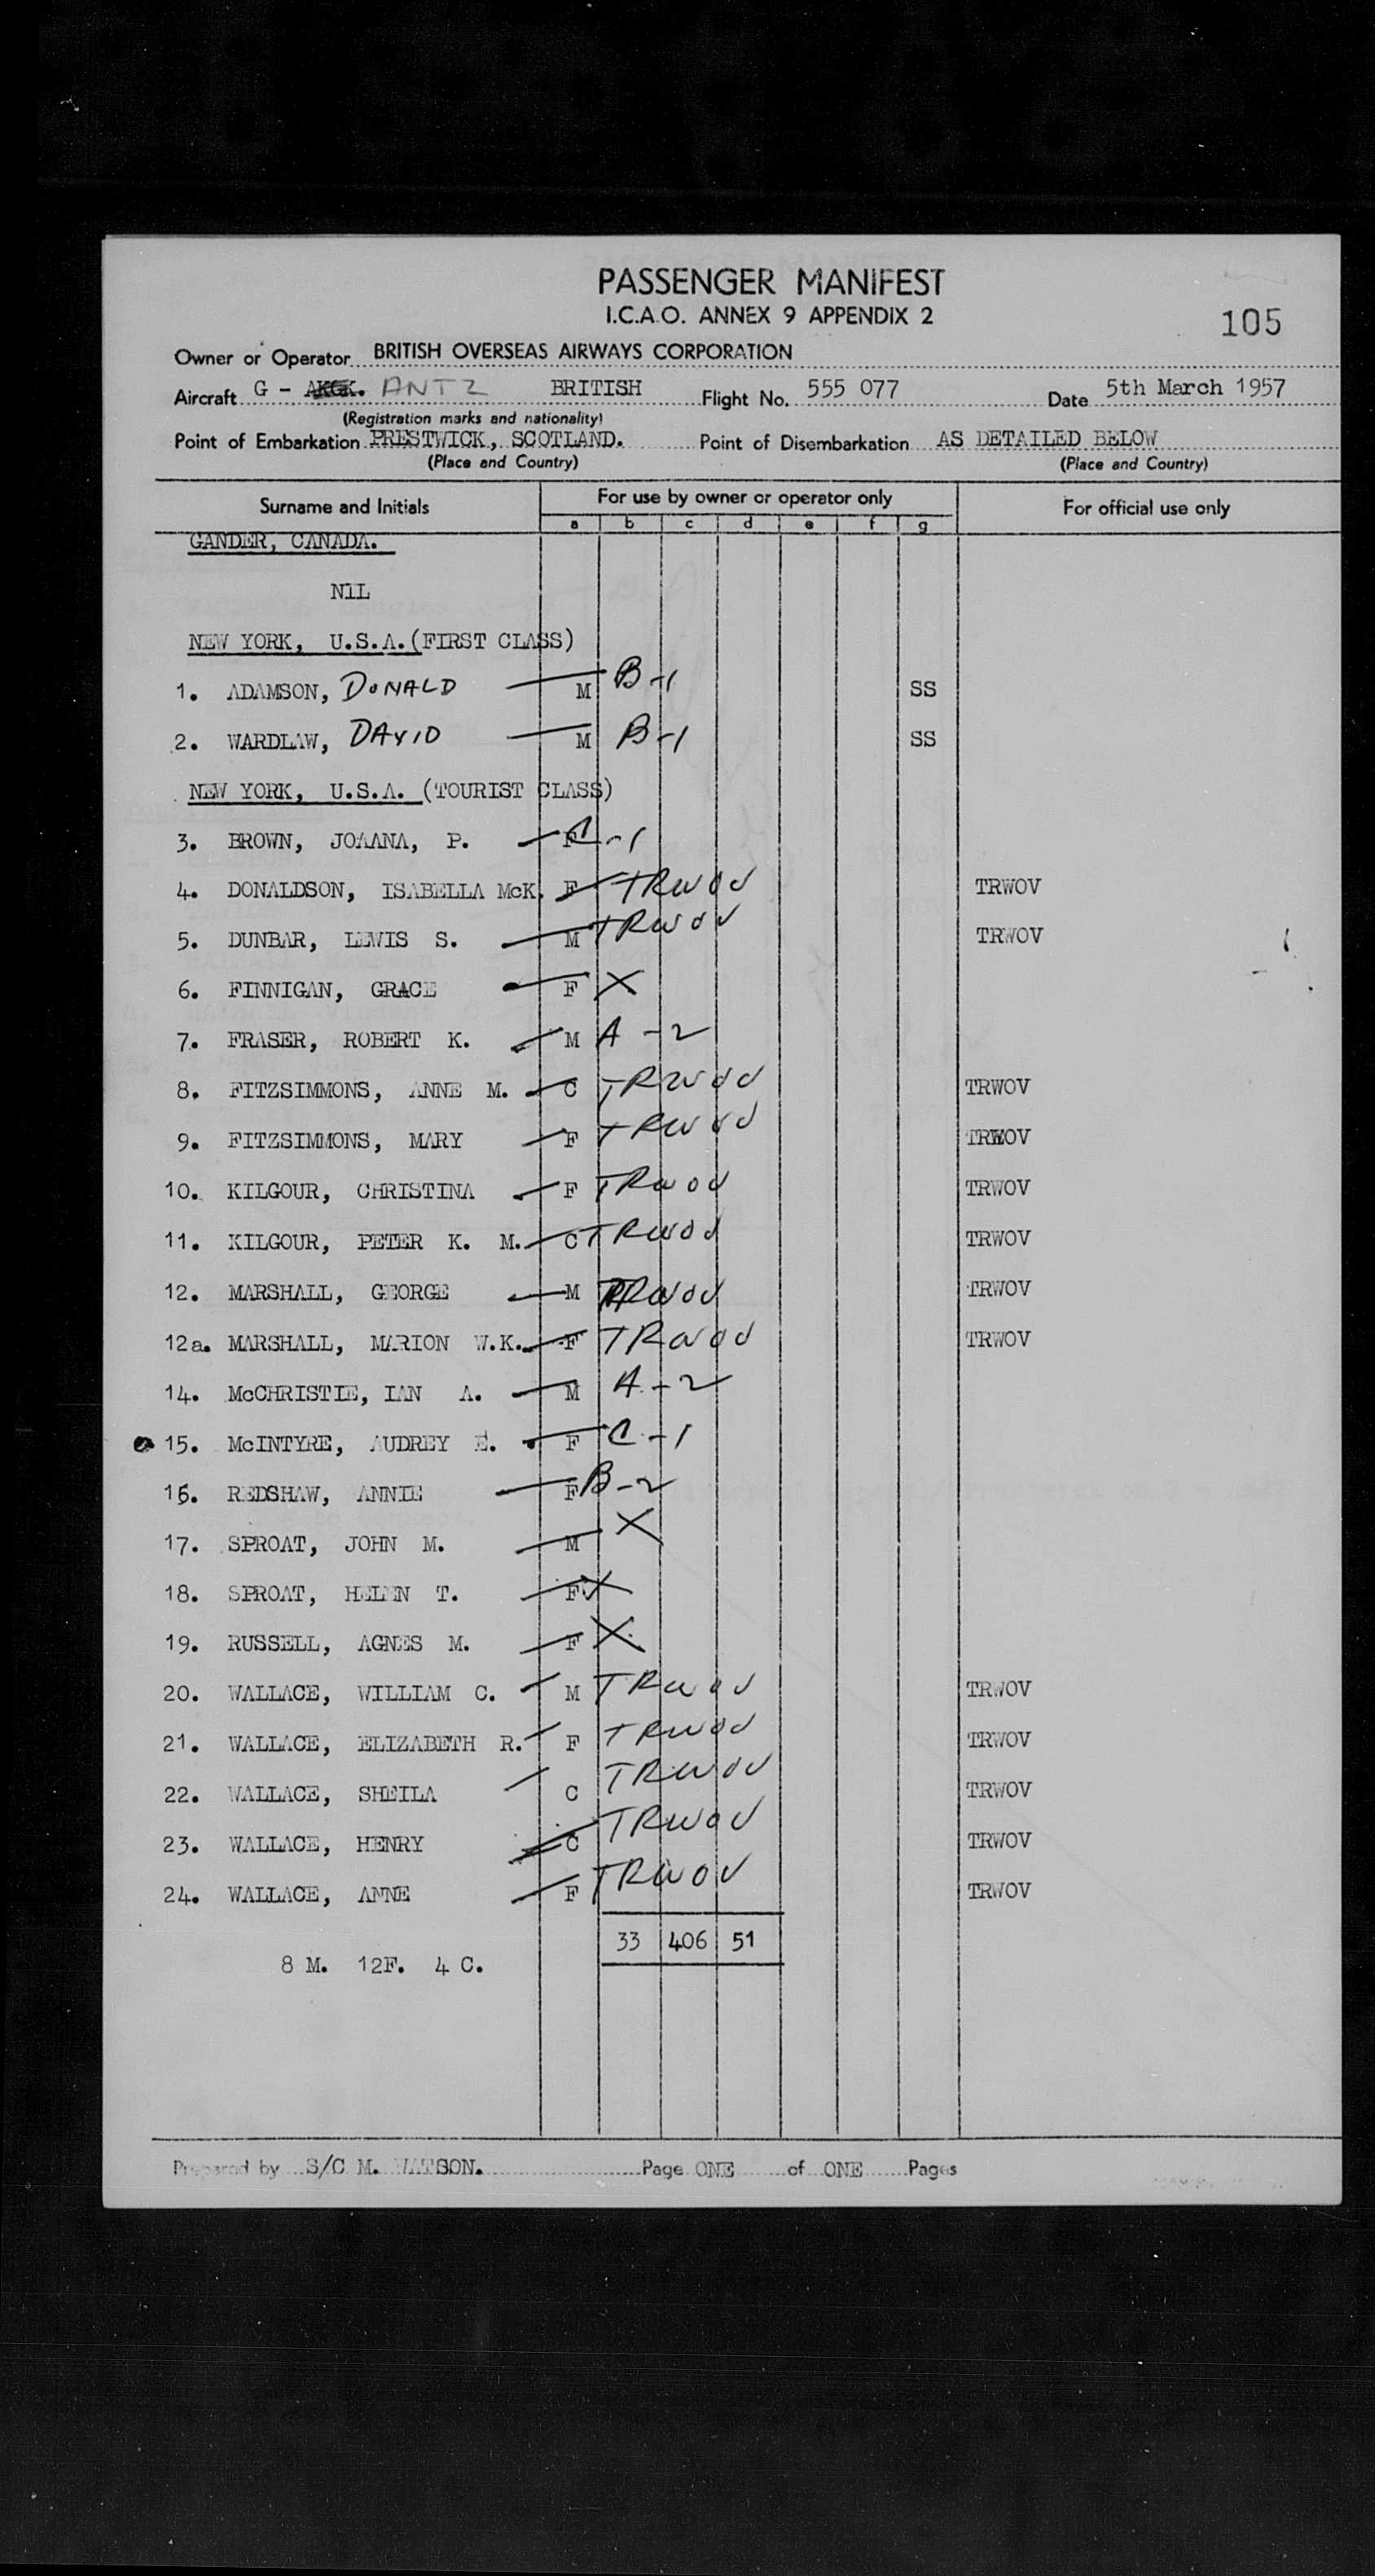 PASSENGER MANIFEST
I.C.A.O. ANNEX 9 APPENDIX 2
105
Owner or Operator BRITISH OVERSEAS AIRWAYS CORPORATION
Aircraft G - ANTZ BRITISH Flight No. 555 077 Date 5th March 1957
(Registration marks and nationality)
Point of Embarkation PRESTWICK, SCOTLAND. Point of Disembarkation AS DETAILED BELOW
(Place and Country) (Place and Country)
Surname and Initials For use by owner or operator only For official use only
a b c d e f g
GANDER, CANADA.
NIL
NEW YORK, U.S.A. (FIRST CLASS)
1. ADAMSON, DONALD M B-1 SS
2. WARDLAW, DAVID M B-1 SS
NEW YORK, U.S.A. (TOURIST CLASS)
3. BROWN, JOAANA, P. F C-1
4. DONALDSON, ISABELLA McK. F TRWOV TRWOV
5. DUNBAR, LEWIS S. M TRWOV TRWOV
6. FINNIGAN, GRACE F X
7. FRASER, ROBERT K. M A-2
8. FITZSIMMONS, ANNE M. C TRWOV TRWOV
9. FITZSIMMONS, MARY F TRWOV TRWOV
10. KILGOUR, CHRISTINA F TRWOV TRWOV
11. KILGOUR, PETER K. M. C TRWOV TRWOV
12. MARSHALL, GEORGE M TRWOV TRWOV
12a. MARSHALL, MARION W.K. F TRWOV TRWOV
14. McCHRISTIE, IAN A. M A-2
15. McINTYRE, AUDREY E. F C-1
16. REDSHAW, ANNIE F B-2
17. SPROAT, JOHN M. M X
18. SPROAT, HELEN T. F X
19. RUSSELL, AGNES M. F X
20. WALLACE, WILLIAM C. M TRWOV TRWOV
21. WALLACE, ELIZABETH R. F TRWOV TRWOV
22. WALLACE, SHEILA C TRWOV TRWOV
23. WALLACE, HENRY C TRWOV TRWOV
24. WALLACE, ANNE F TRWOV TRWOV
33 406 51
8 M. 12F. 4 C.
Prepared by S/C M. WATSON. Page ONE of ONE Pages